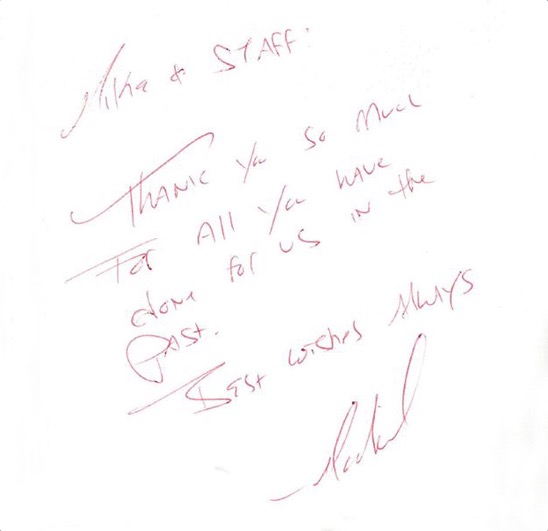 Mike & STAFF:
THANK You So Much
For All You HAVE
done for US IN the
PAST.
BEST wishes Always